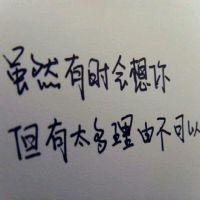 虽然有时会想你
但有太多理由不可以